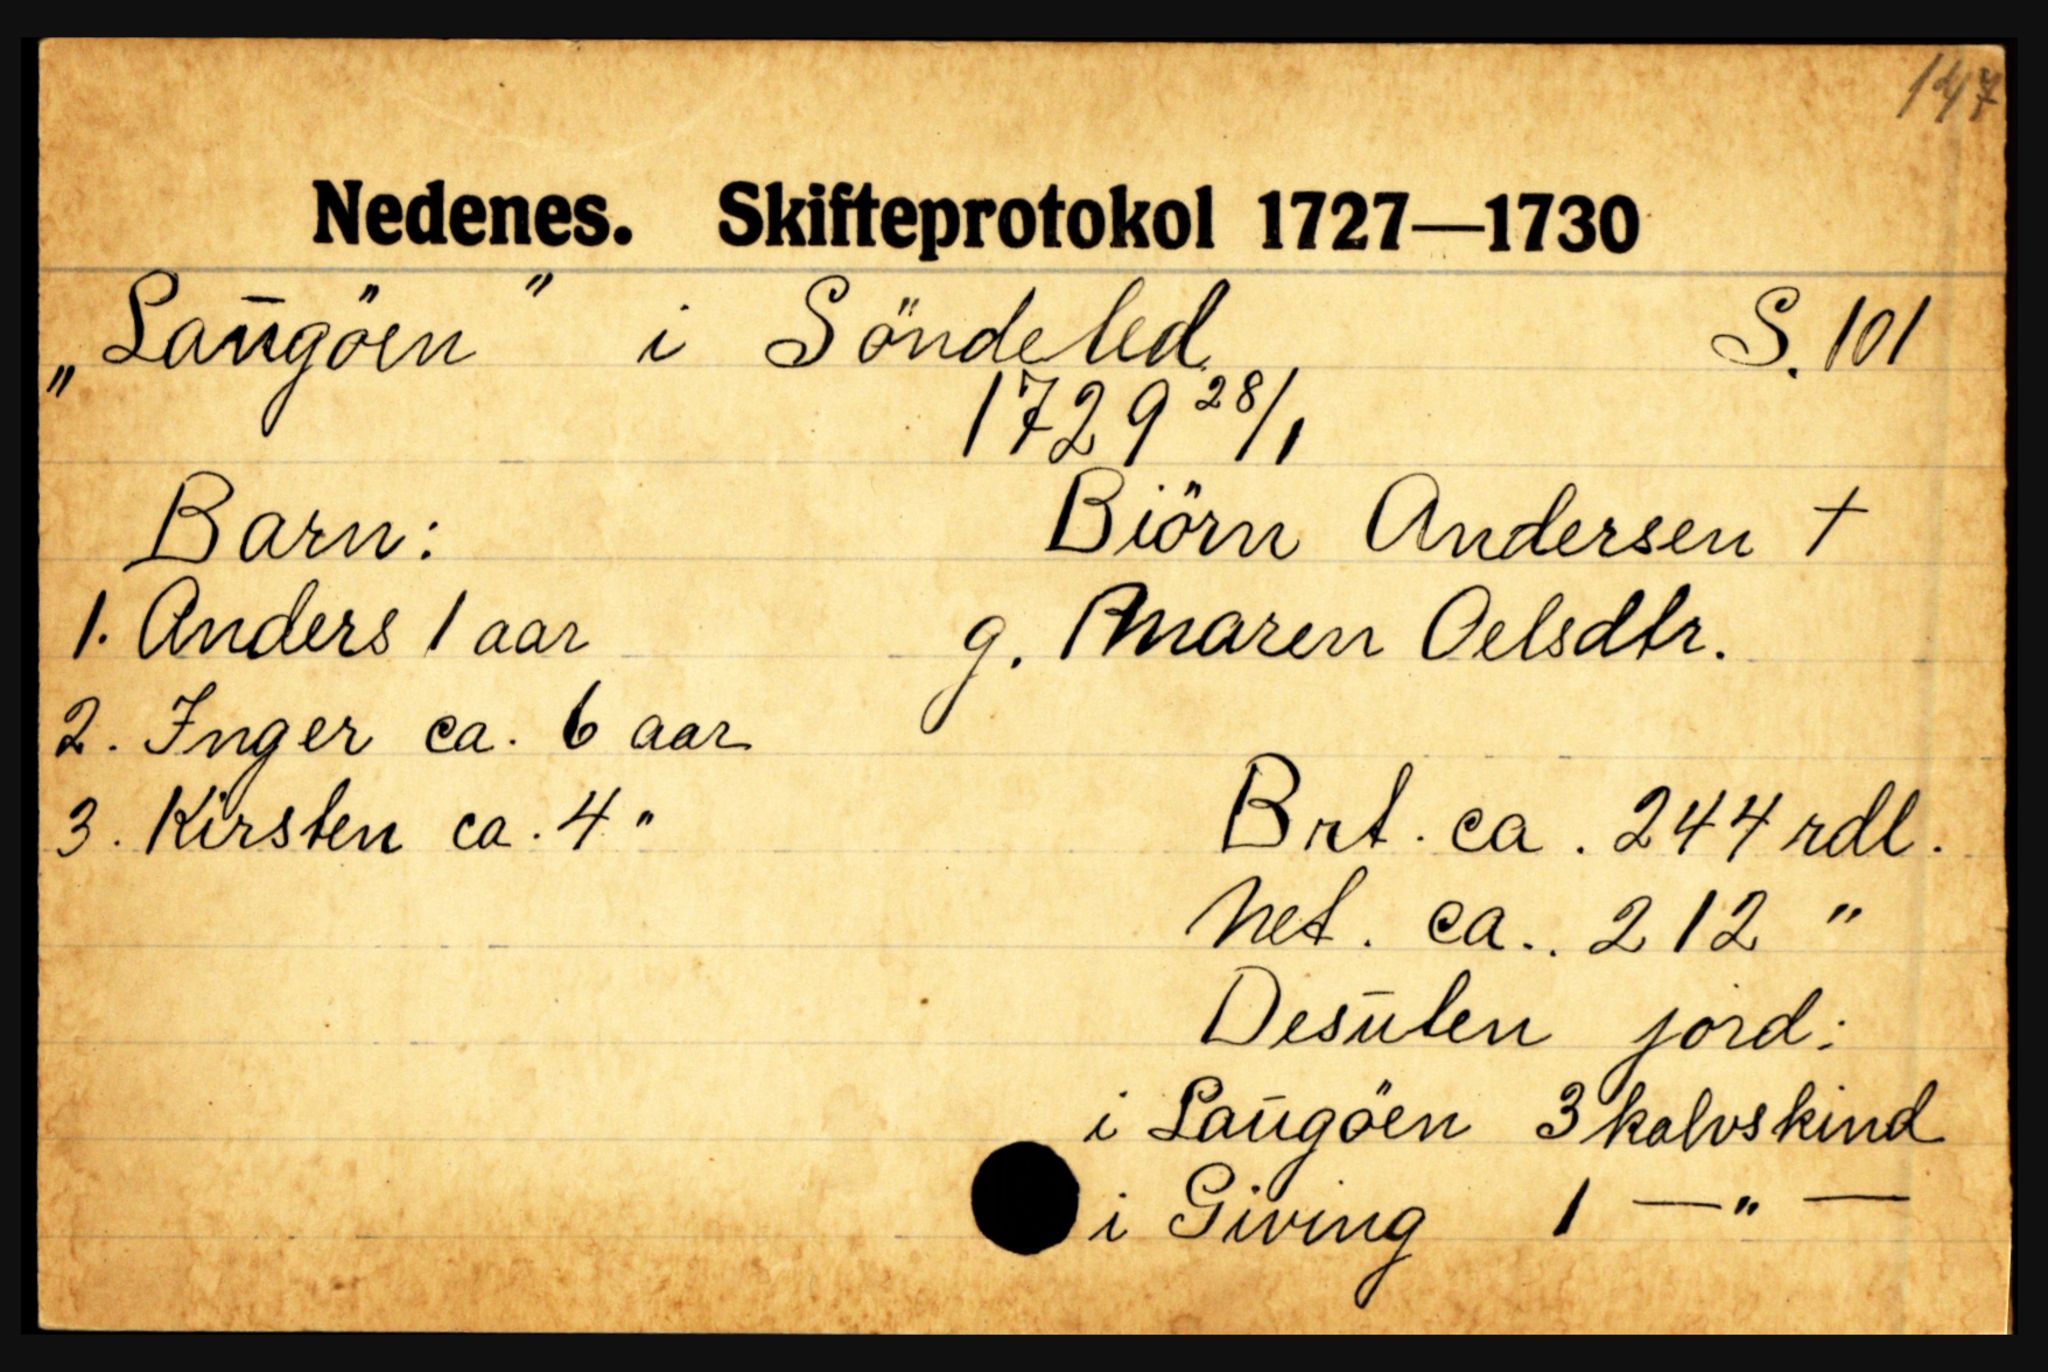 147
Nedenes. Skifteprotokol 1727—1730
„Laūgöen" i Söndeled S. 101
1729 28/1
Barn: Biörn Andersen †
1. Anders 1 aar g. Maren Oelsdtr.
2. Inger ca. 6 aar
3. Kirsten ca. 4 " Brt. ca. 244 rdl.
Net. ca.. 212 "
Desūten jord:
i Laūgöen 3 kalvskind
i Giving 1 — " —